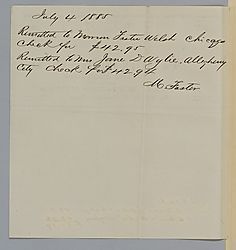 July 4 1885
Remitted to Morrison Foster Welsh Chicago
Check for $42.95
Remitted to Mrs. Jane D Wylie, Allegheny
City Check for $42.94
M. Foster